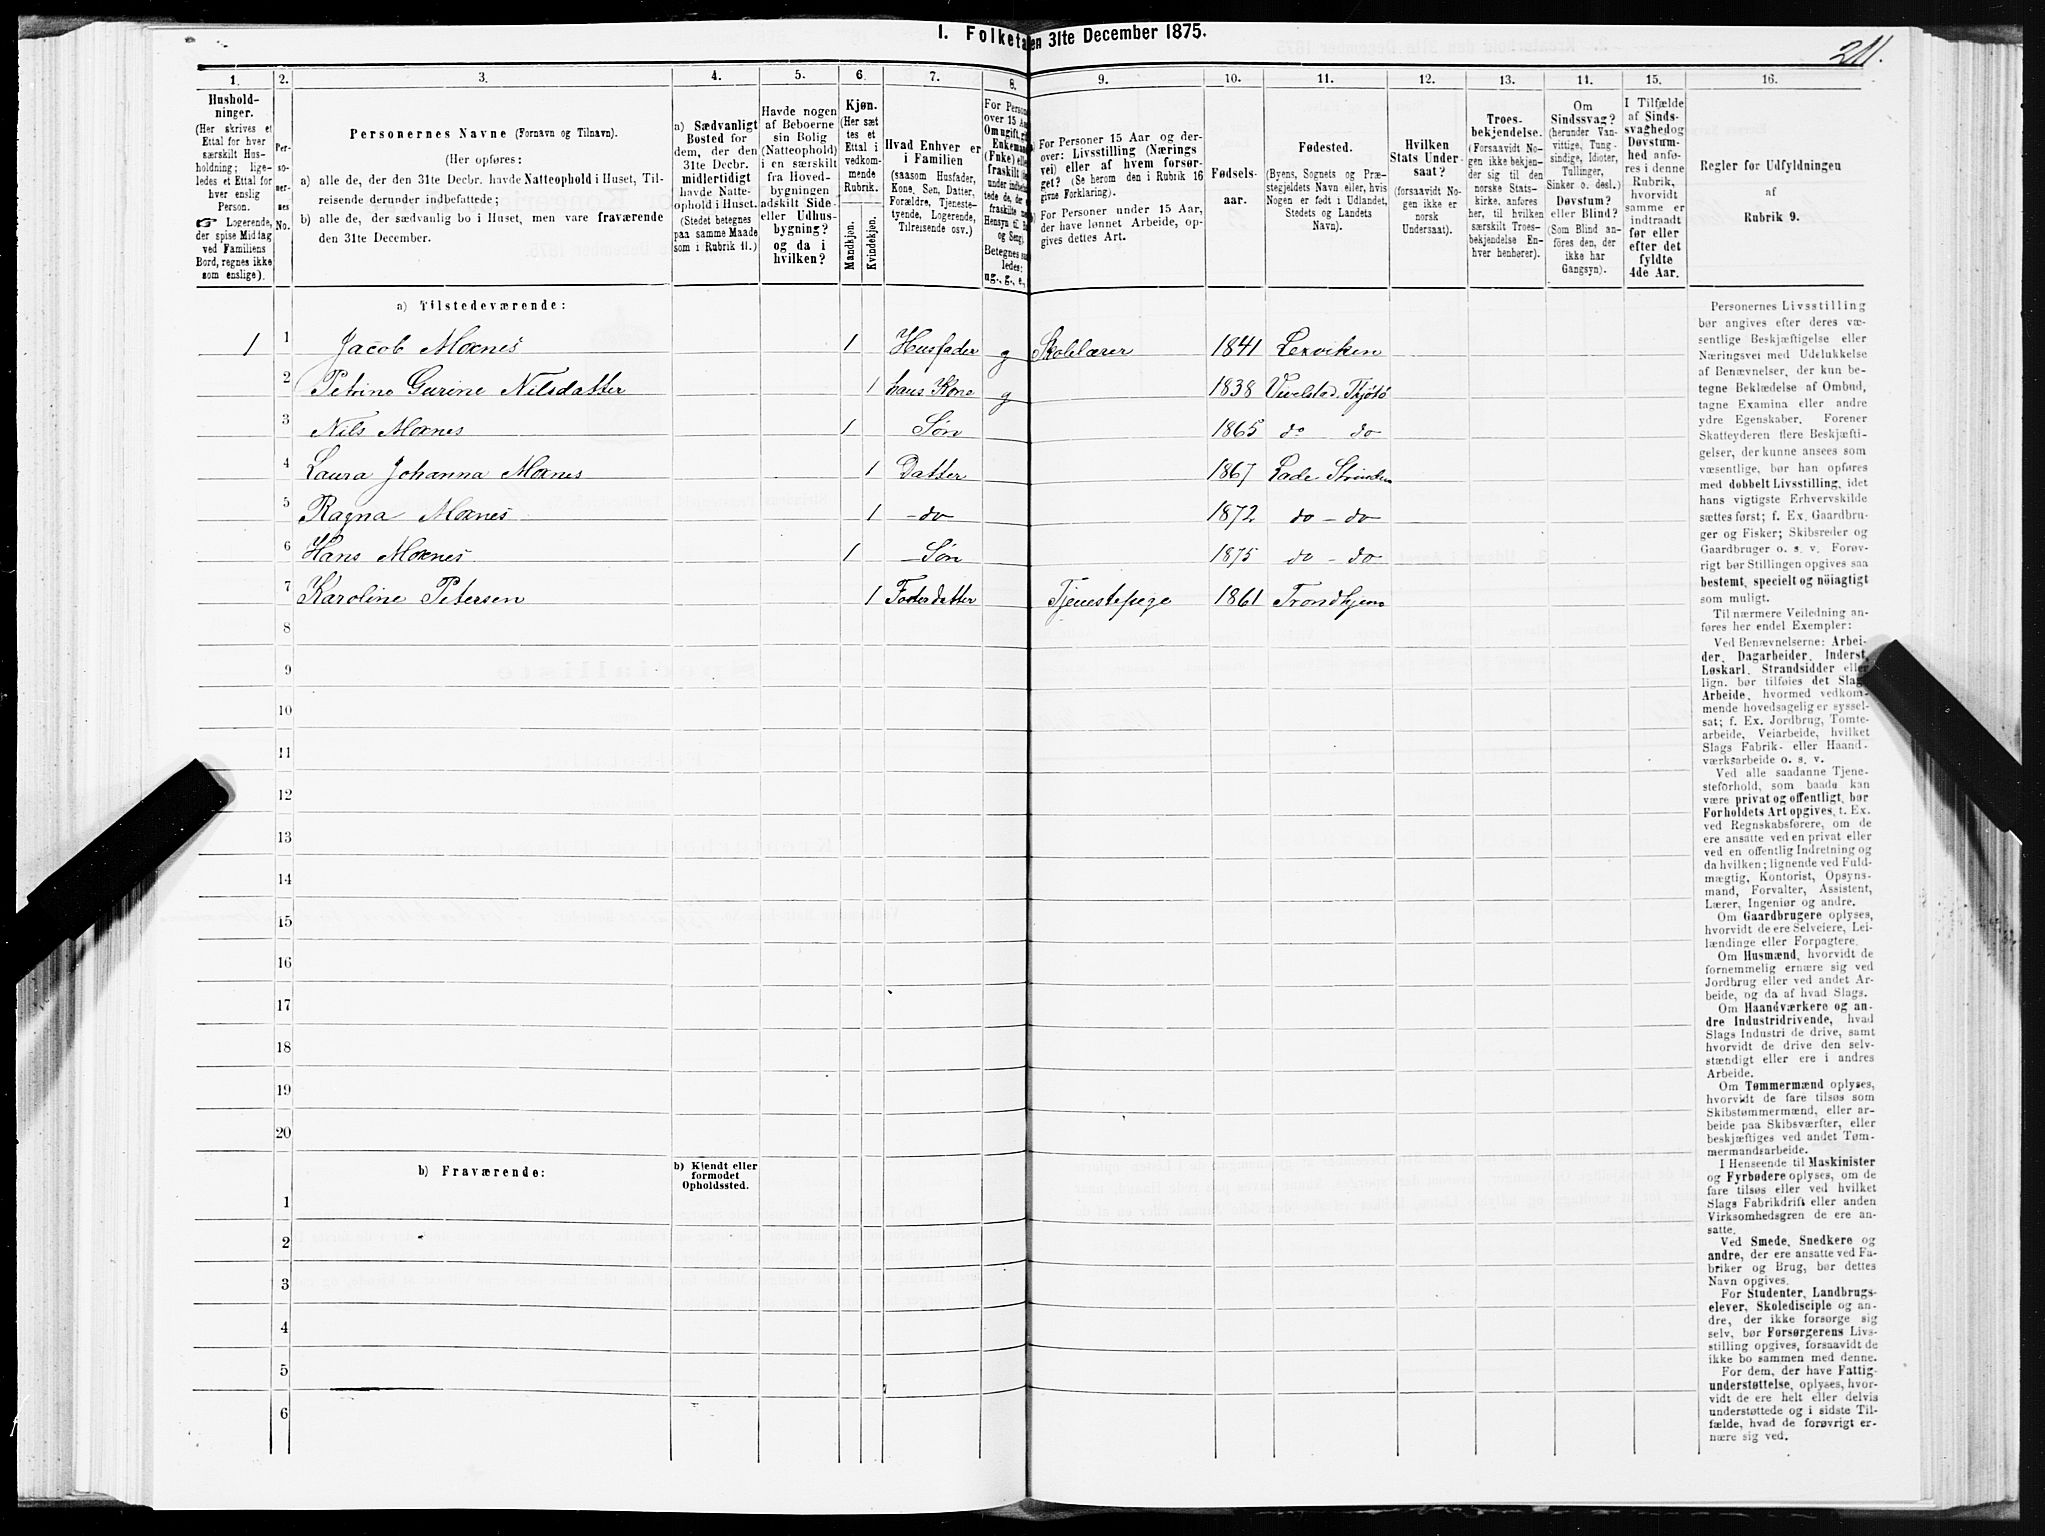 1. Folketa en 31te December 1875.
211.
1. 2. 3. 4. 5. 6. 7. 8. 9. 10. 11. 12. 13. 14. 15. 16.
Hushold-
ninger.
(Her skrives et
Ettal for hver
særskilt Hus-
holdning; lige-
ledes et Ettal for
hver enslig
Person.
☞ Logerende,
der spise Middag
ved Familiens
Bord, regnes ikke
som enslige).
Per-
so-
ner-
nes
No.
Personernes Navne (Fornavn og Tilnavn).
(Her opføres:
a) alle de, der den 31te Decbr. havde Natteophold i Huset, Til-
reisende derunder indbefattede;
b) alle de, der sædvanlig bo i Huset, men vare fraværende
den 31te December.
a) Sædvanligt
Bosted for
dem, der den
31te Decbr.
midlertidigt
havde Natte-
ophold i Huset.
(Stedet betegnes
paa samme Maade
som i Rubrik 11.)
Havde nogen
af Beboerne
sin Bolig
(Natteophold)
i en særskilt
fra Hoved-
bygningen
adskilt Side-
eller Udhus-
bygning?
og da i
hvilken?
Kjøn.
(Her sæt
tes et
Ettal i
vedkom-
mende
Rubrik.
Mandkjøn.
Kvindekjøn.
Hvad Enhver er
i Familien
(saasom Husfader,
Kone, Søn, Datter,
Forældre, Tjeneste-
tyende, Logerende,
Tilreisende osv.)
For Person
over 15 Aar
Om ugift, gi
Enkemand
(Enke) elle
fraskilt
Betegnes saa
ledes:
ug., g., e,
a) For Personer 15 Aar og der-
over: Livsstilling (Nærings
vei) eller af hvem forsør-
get? (Se herom den i Rubrik 16
givne Forklaring).
b) For Personer under 15 Aar,
der have lønnet Arbeide, op-
gives dettes Art.
Fødsels-
aar.
Fødested.
(Byens, Sognets og Præ-
stegjeldets Navn eller, hvis
Nogen er født i Udlandet,
Stedets og Landets
Navn).
Hvilken
Stats Under-
saat?
(forsaavidt No-
gen ikke er
norsk
Undersaat).
Troes-
bekjendelse.
(Forsaavidt No-
gen ikke bekjen-
der sig til den
norske Stats-
kirke, anføres
her, til hvilken
særskilt Troes-
bekjendelse En-
hver henhører).
Om
Sindssvag?
(herunder Van-
vittige, Tung-
sindige, Idioter,
Tullinger,
Sinker o. desl.)
Døvstum?
eller Blind?
(Som Blind an-
føres den, der
ikke har
Gangsyn).
I Tilfælde
af Sinds-
svaghed og
Døvstum-
hed anfø-
res i denne
Rubrik,
hvorvidt
samme er
indtraadt
før eller
efter det
fyldte
4de Aar.
Regler for Udfyldningen
af
Rubrik 9.
a) Tilstedeværende:
1 1 Jacob Moxnes 1 Husfader g Skolelærer 1841 Lexviken
2 Petrine Gurine Nilsdatter 1 hans Kone g 1838 Vivelstad, Tjøtø
3 Nils Moxnes 1 Søn 1865 do do
4 Laura Johanna Moxnes 1 Datter 1867 Lade Strinden
5 Ragna Moxnes 1 - do 1872 do - do
6 Hans Moxnes 1 - Søn 1875 do - do
7 Karoline Petersen 1 Fosterdatter Tjenestepige 1861 Trondhjem
8
9
10
11
12
13
14
15
16
17
18
19
20
b) Fraværende:
b) Kjendt eller
formodet
Opholdssted.
1
2
3
4
5
6
Personernes Livsstilling
bør angives efter deres væ-
sentlige Beskjæftigelse eller
Næringsvei med Udelukkelse
af Benævnelser, der kun be-
tegne Beklædelse af Ombud,
tagne Examina eller andre
ydre Egenskaber. Forener
Skatteyderen flere Beskjæfti-
gelser, der kunne ansees som
væsentlige, bør han opføres
med dobbelt Livsstilling, idet
hans vigtigste Erhvervskilde
sættes først; f. Ex. Gaardbru-
ger og Fisker; Skibsreder og
Gaardbruger o. s. v. Forøv-
rigt bør Stillingen opgives saa
bestemt, specielt og nöiagtigt
som muligt.
Til nærmere Veiledning an-
føres her endel Exempler:
Ved Benævnelserne: Arbei-
der, Dagarbeider, Inderst,
Løskarl, Strandsidder eller
lign. bør tilføies det Slags
Arbeide, hvormed vedkom-
mende hovedsagelig er syssel-
sat; f. Ex. Jordbrug, Tomte-
arbeide, Veiarbeide, hvilket
Slags Fabrik- eller Haand-
værksarbeide o. s. v.
Ved alle saadanne Tjene-
steforhold, som baade kan
være privat og offentligt, bør
Forholdets Art opgives, t. Ex.
ved Regnskabsførere, om de
ere ansatte ved en privat eller
ved en offentlig Indretning og
da hvilken; lignende ved Fuld-
mægtig, Kontorist, Opsyns-
mand, Forvalter, Assistent,
Lærer, Ingeniør og andre.
Om Gaardbrugere oplyses,
hvorvidt de ere Selveiere, Lei-
lændinge eller Forpagtere.
Om Husmænd, hvorvidt de
fornemmelig ernære sig ved
Jordbrug eller ved andet Ar-
beide, og da af hvad Slags.
Om Haandværkere og an-
dre Industridrivende, hvad
Slags Industri de drive, samt
hvorvidt de drive den selv-
stændigt eller ere i andres
Arbeide.
Om Tømmermænd oplyses,
hvorvidt de fare tilsøs som
Skibstømmermænd, eller ar-
beide paa Skibsværfter, eller
beskjæftiges ved andet Tøm-
mermandsarbeide.
I Henseende til Maskinister
og Fyrbødere oplyses, om de
fare tilsøs eller ved hvilket
Slags Fabrikdrift eller anden
Virksomhedsgren de ere an-
satte.
Ved Smede, Snedkere og
andre, der ere ansatte ved Fa-
briker og Brug, bør dettes
Navn opgives.
For Studenter, Landbrugs-
elever, Skoledisciple og an-
dre, der ikke forsørge sig
selv, bør Forsørgerens Livs-
stilling opgives, forsaavidt de
ikke bo sammen med denne.
For dem, der have Fattig-
understøttelse, oplyses, hvor-
vidt de ere helt eller delvis
understøttede og i sidste Til-
fælde, hvad de forøvrigt er-
nære sig ved.